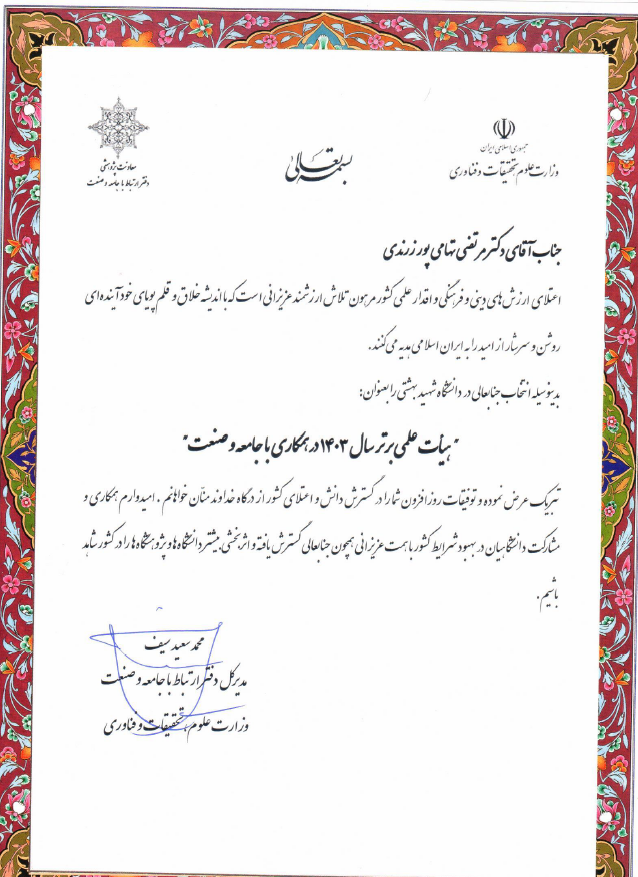 بسمه تعالی
جمهوری اسلامی ایران
وزارت علوم تحقیقات و فناوری
معاونت پژوهشی
دفتر ارتباط با جامعه و صنعت
جناب آقای دکتر مرتضی تهامی پور زرندی
اعتلای ارزش های دینی و فرهنگی و اقتدار علمی کشور مرهون تلاش ارزشمند عزیزانی است که با اندیشه خلاق و قلم پویای خود آینده ای
روشن و سرشار از امید را به ایران اسلامی هدیه می کنند.
بدینوسیله انتخاب جنابعالی در دانشگاه شهید بهشتی را بعنوان:
"هیأت علمی برتر سال ۱۴۰۳ در همکاری با جامعه و صنعت"
تبریک عرض نموده و توفیقات روزافزون شما را در گسترش دانش و اعتلای کشور از درگاه خداوند منّان خواهانم . امیدوارم همکاری و
مشارکت دانشگاهیان در بهبود شرایط کشور با همت عزیزانی همچون جنابعالی گسترش یافته و اثربخشی بیشتر دانشگاه ها و پژوهشگاه ها را در کشور شاهد
باشیم.
محمد سعید سیف
مدیرکل دفتر ارتباط با جامعه و صنعت
وزارت علوم، تحقیقات و فناوری